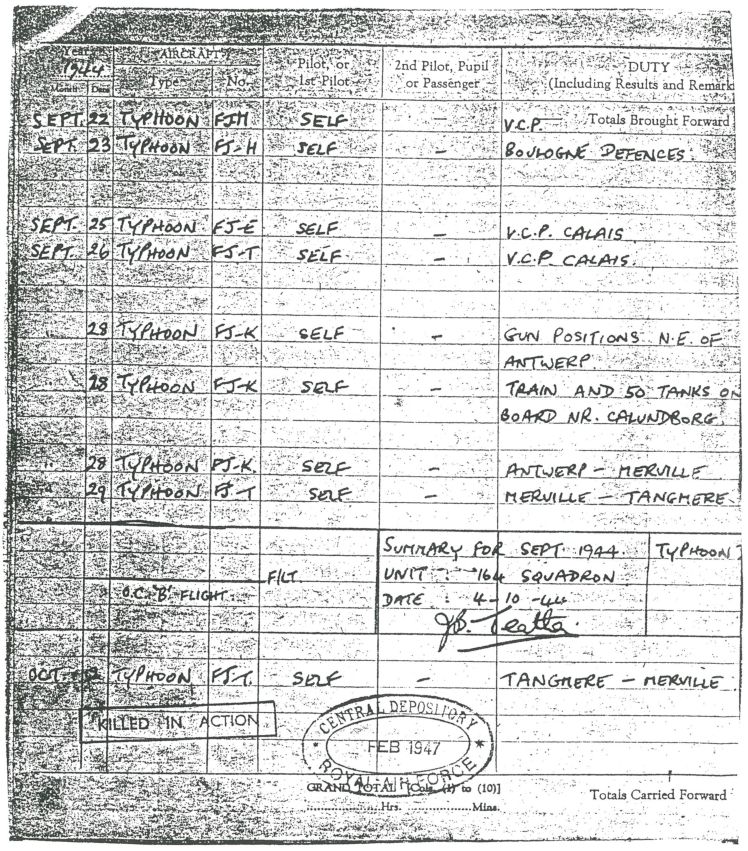 Year AIRCRAFT Pilot, or 2nd Pilot, Pupil DUTY
1944 Type No. 1st Pilot or Passenger (Including Results and Remark
Month Date
Totals Brought Forward
SEPT. 22 TYPHOON FJH SELF — V.C.P.
SEPT. 23 TYPHOON FJ-H SELF — BOULOGNE DEFENCES.
SEPT. 25 TYPHOON FJ-E SELF — V.C.P. CALAIS
SEPT. 26 TYPHOON FJ-T SELF — V.C.P. CALAIS.
28 TYPHOON FJ-K SELF — GUN POSITIONS N.E. OF
ANTWERP.
" 28 TYPHOON FJ-K SELF — TRAIN AND 50 TANKS ON
BOARD NR. CALUNDBORG.
" 28 TYPHOON FJ-K. SELF — ANTWERP — MERVILLE
" 29 TYPHOON FJ-T SELF — MERVILLE — TANGMERE.
SUMMARY FOR SEPT. 1944. TYPHOON
F/LT. UNIT : 164 SQUADRON
O.C. 'B' FLIGHT. DATE : 4-10-44
OCT. TYPHOON FJ-T. SELF — TANGMERE — MERVILLE
KILLED IN ACTION
CENTRAL DEPOSITORY
FEB 1947
ROYAL AIR FORCE
GRAND TOTAL [Cols. (1) to (10)]
Hrs. Mins.
Totals Carried Forward